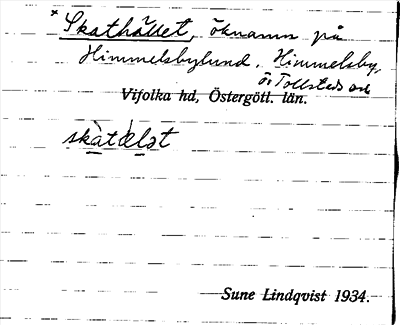 * Skathället, öknamn på
Himmelsbylund, Himmelsby,
Ö. Tollstad sn
Vifolka hd, Östergötl. län.
skàtælət
Sune Lindqvist 1934.